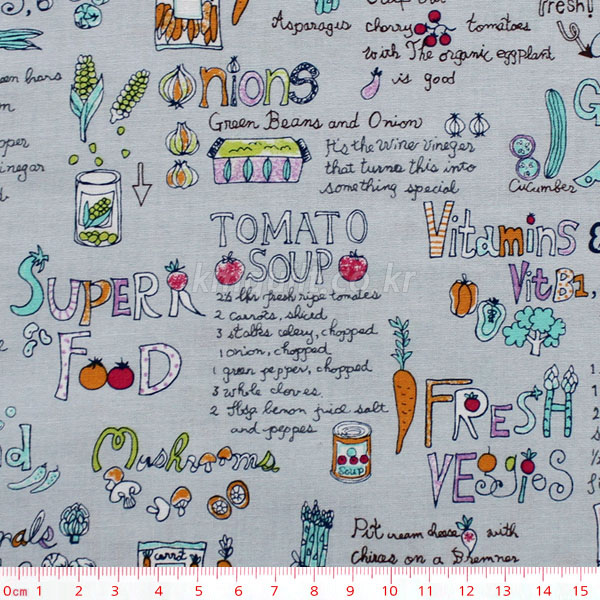 Fresh!
Asparagus cherry tomatoes
with The organic eggplant
is good
Onions
Green Beans and Onion
It's the wine vinegar
that turns this into
something special
Cucumber
TOMATO
SOUP
2½ lbs fresh ripe tomatoes
2 carrots, sliced
3 stalks celery, chopped
1 onion, chopped
1 green pepper, chopped
3 whole cloves
2 Tbsp lemon juice salt
and peppes
Soup
Vitamins &
Vit B1,
SUPER
FOOD
FRESH
VEGGIES
Mushrooms
carrot
Pit cream cheese with
Chives on a Bremner
0cm 1 2 3 4 5 6 7 8 9 10 11 12 13 14 15